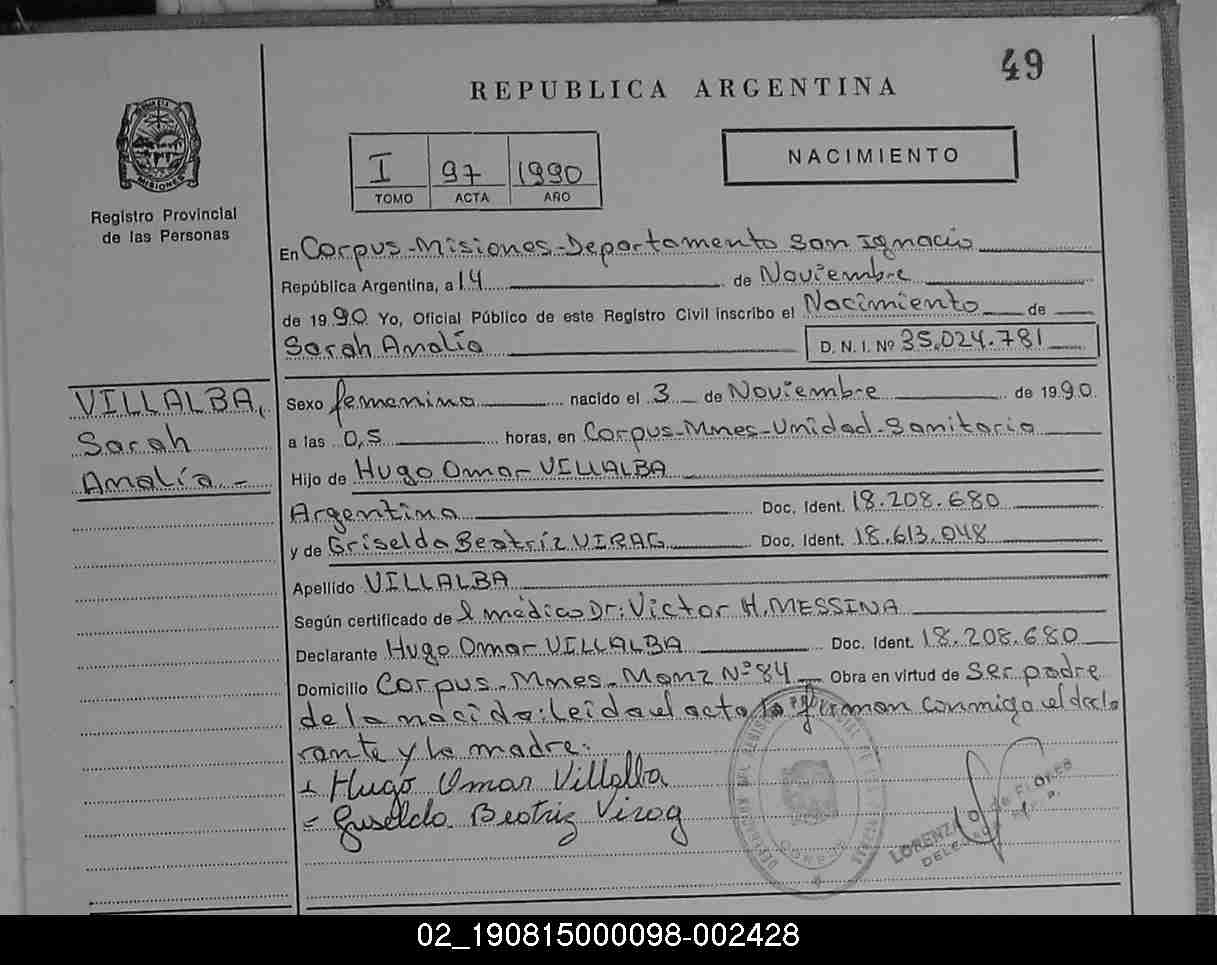 49
REPUBLICA ARGENTINA
MISIONES
Registro Provincial
de las Personas
I 97 1990
TOMO ACTA AÑO
NACIMIENTO
En Corpus-Misiones-Departamento San Ignacio
República Argentina, a 14 de Noviembre
de 1990 Yo, Oficial Público de este Registro Civil inscribo el Nacimiento de
Sarah Amalia D. N. I. Nº 35.024.781
VILLALBA,
Sarah
Amalía -
Sexo femenino nacido el 3 de Noviembre de 1990.
a las 0,5 horas, en Corpus-Mnes-Unidad-Sanitaria
Hijo de Hugo Omar VILLALBA
Argentina Doc. Ident. 18.208.680
y de Griselda Beatríz VIRAG Doc. Ident. 18.613.048
Apellido VILLALBA
Según certificado de l médico Dr: Victor H. MESSINA
Declarante Hugo Omar VILLALBA Doc. Ident. 18.208.680
Domicilio Corpus-Mnes-Manz Nº 84 Obra en virtud de ser padre
de la nacida: Leida el acta la firman conmigo el decla
rante y la madre:
Hugo Omar Villalba
Griselda Beatriz Virag
CORPUS
LORENZA de FLORES